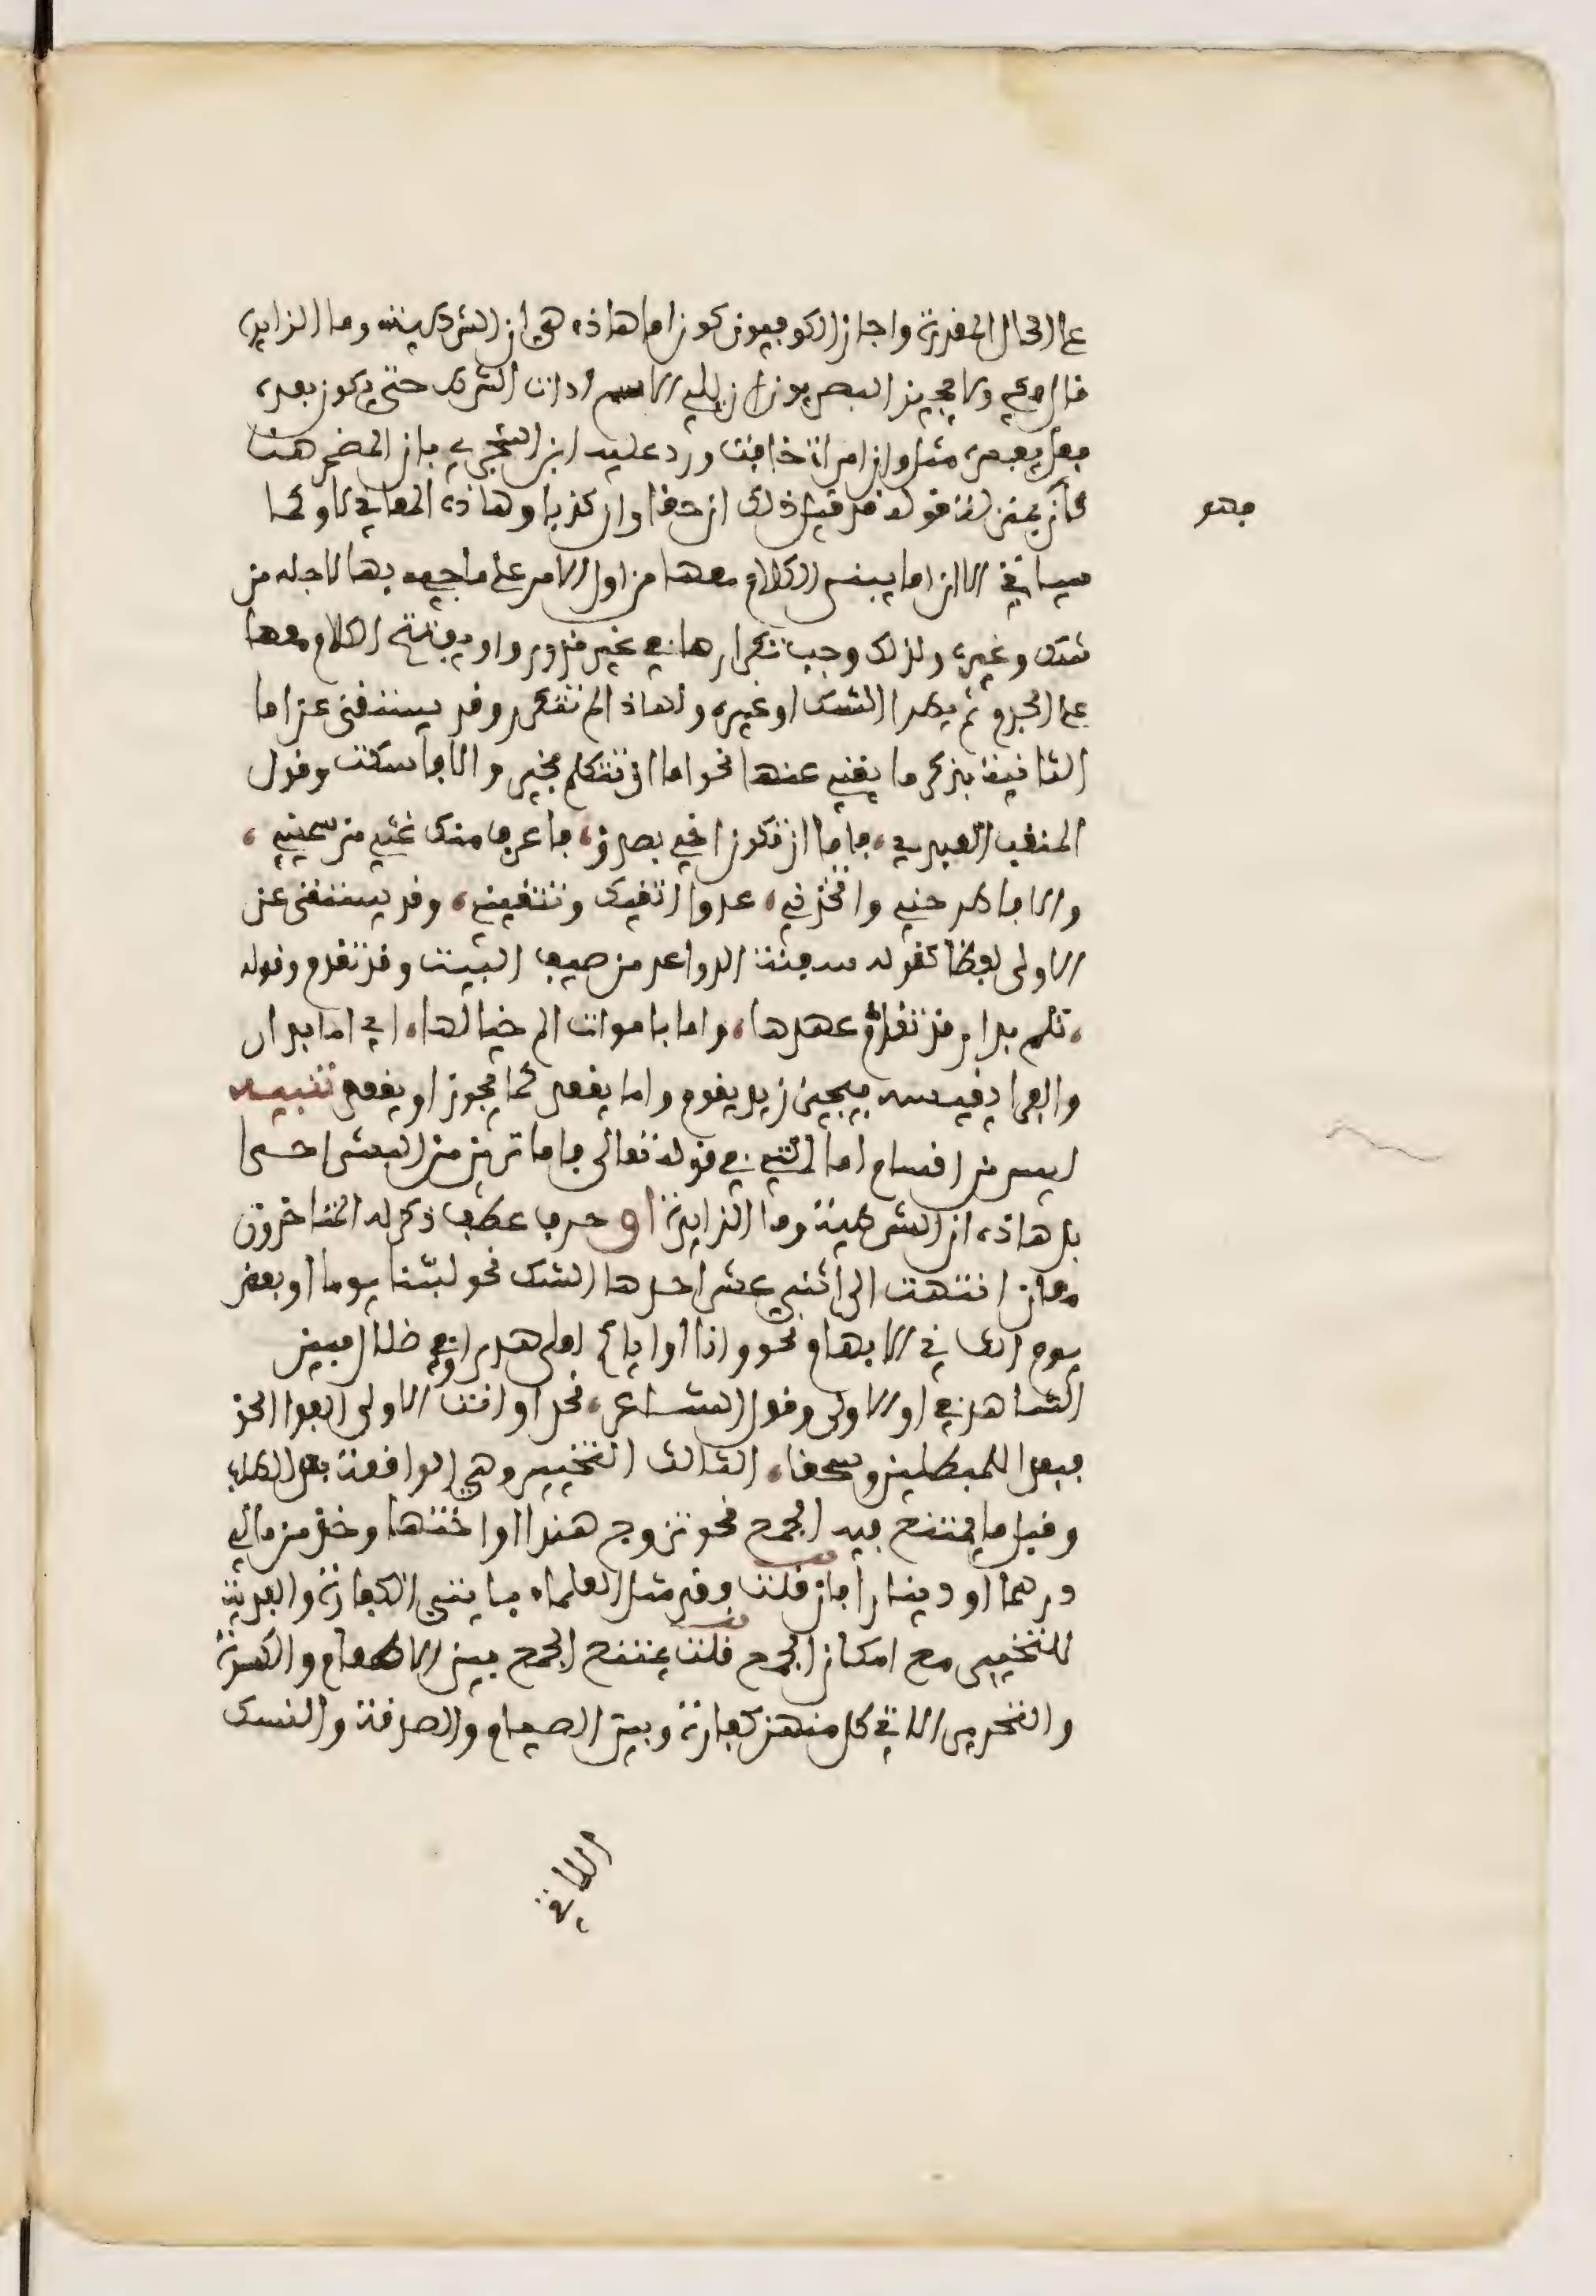 على الحال المقدرة واجاز الكوفيون كون اما هاذه هي ان الشرطية وما الزايدة
قال مكي ولا يجيز البصريون ان يلي الاسم ادات الشرط حتى يكون بعده
فعل يفسره مثل وان امراة خافت ورد عليه ابن الشجري بان المضمر هنا
كان بمنزلة قوله قد قيل ذلك ان حقا وان كذبا وهاذه المعاني لاو كما
فهو
سياتي الا ان اما يبنى الكلام معها من اول الامر على ما جيء بها لاجله من
شك وغيره ولذلك وجب تكرارها في غير ندور واو يفتتح الكلام معها
على الجزم ثم يطرا الشك او غيره ولهاذا لم تتكرر وقد يستغنى عن اما
الثانية بذكر ما يغني عنها نحو اما ان تتكلم بخير والا فاسكت وقول
المثقب العبدي، فاما ان تكون اخي بصدق، فاعرف منك غثي من سميني،
والا فاطرحني واتخذني، عدوا اتقيك وتتقيني، وقد يستغنى عن
الاولى لفظا كقوله سقته الرواعد من صيف البيت وقد تقدم وقوله
، تلم بدار قد تقادم عهدها، واما باموات الم خيالها، اي اما بدار
والفرا يقيسه فيجيز زيد يقوم واما يقعد كما يجوز او يقعد تنبيه
ليس من اقسام اما التي في قوله تعالى فاما ترين من البشر احدا
بل هاذه ان الشرطية وما الزايدة او حرف عطف ذكر له المتاخرون
معان انتهت الى اثني عشر احدها الشك نحو لبثنا يوما او بعض
يوم الثاني الابهام نحو وانا او اياكم لعلى هدى او في ضلال مبين
الشاهد في او الاولى وقول الشاعر، نحن او انتم الاولى الفوا الحق
فبعدا للمبطلين وسحقا، الثالث التخيير وهي الواقعة بعد الطلب
وقبل ما يمتنع فيه الجمع نحو تزوج هندا او اختها وخذ من مالي
درهما او دينارا فان قلت وقد مثل العلماء بايتي الكفارة والفدية
للتخيير مع امكان الجمع قلت يمتنع الجمع بين الاطعام والكسوة
والتحرير اللاتي كل منهن كفارة وبين الصيام والصدقة والنسك
اللاتي